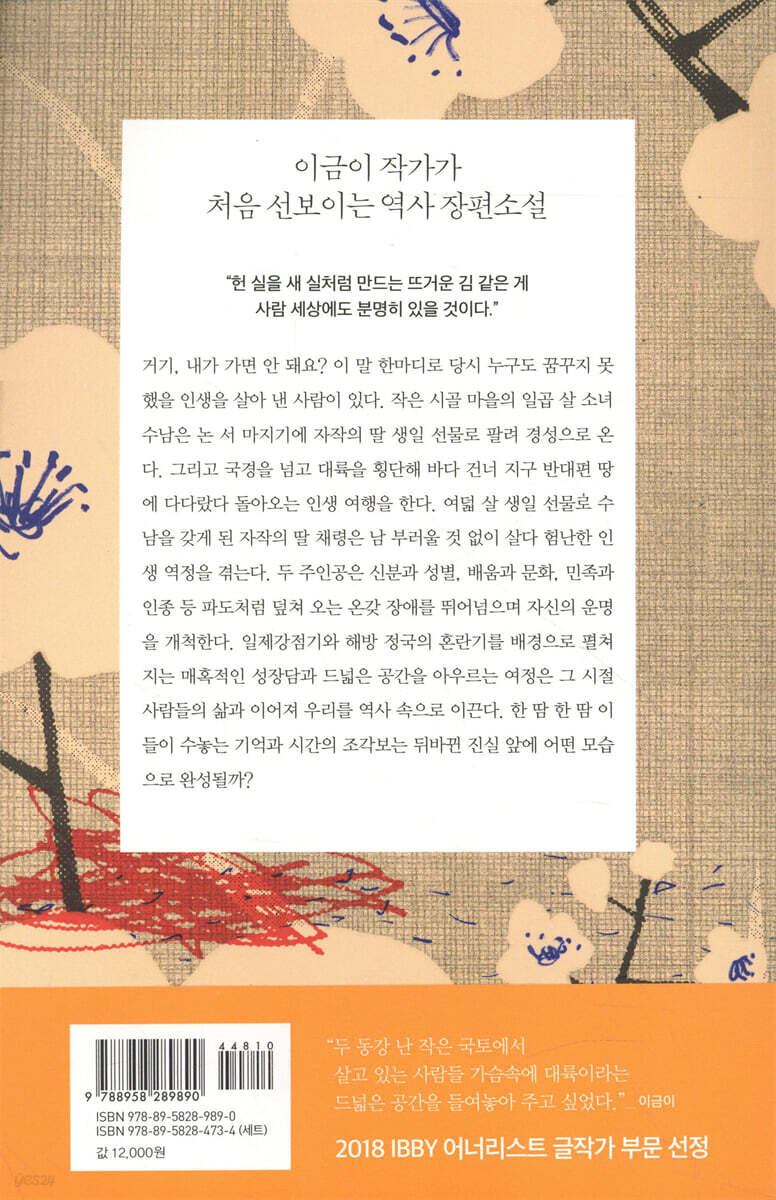 이금이 작가가
처음 선보이는 역사 장편소설
“헌 실을 새 실처럼 만드는 뜨거운 김 같은 게
사람 세상에도 분명히 있을 것이다.”
거기, 내가 가면 안 돼요? 이 말 한마디로 당시 누구도 꿈꾸지 못
했을 인생을 살아 낸 사람이 있다. 작은 시골 마을의 일곱 살 소녀
수남은 논 서 마지기에 자작의 딸 생일 선물로 팔려 경성으로 온
다. 그리고 국경을 넘고 대륙을 횡단해 바다 건너 지구 반대편 땅
에 다다랐다 돌아오는 인생 여행을 한다. 여덟 살 생일 선물로 수
남을 갖게 된 자작의 딸 채령은 남 부러울 것 없이 살다 험난한 인
생 역정을 겪는다. 두 주인공은 신분과 성별, 배움과 문화, 민족과
인종 등 파도처럼 덮쳐 오는 온갖 장애를 뛰어넘으며 자신의 운명
을 개척한다. 일제강점기와 해방 정국의 혼란기를 배경으로 펼쳐
지는 매혹적인 성장담과 드넓은 공간을 아우르는 여정은 그 시절
사람들의 삶과 이어져 우리를 역사 속으로 이끈다. 한 땀 한 땀 이
들이 수놓는 기억과 시간의 조각보는 뒤바뀐 진실 앞에 어떤 모습
으로 완성될까?
44810
9 788958 289890
ISBN 978-89-5828-989-0
ISBN 978-89-5828-473-4 (세트)
값 12,000원
“두 동강 난 작은 국토에서
살고 있는 사람들 가슴속에 대륙이라는
드넓은 공간을 들여놓아 주고 싶었다.”_ 이금이
2018 IBBY 어너리스트 글작가 부문 선정
yes24